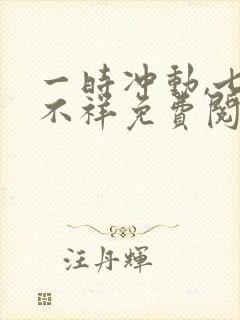 一時冲動,七
不祥免費閱
汪丹輝